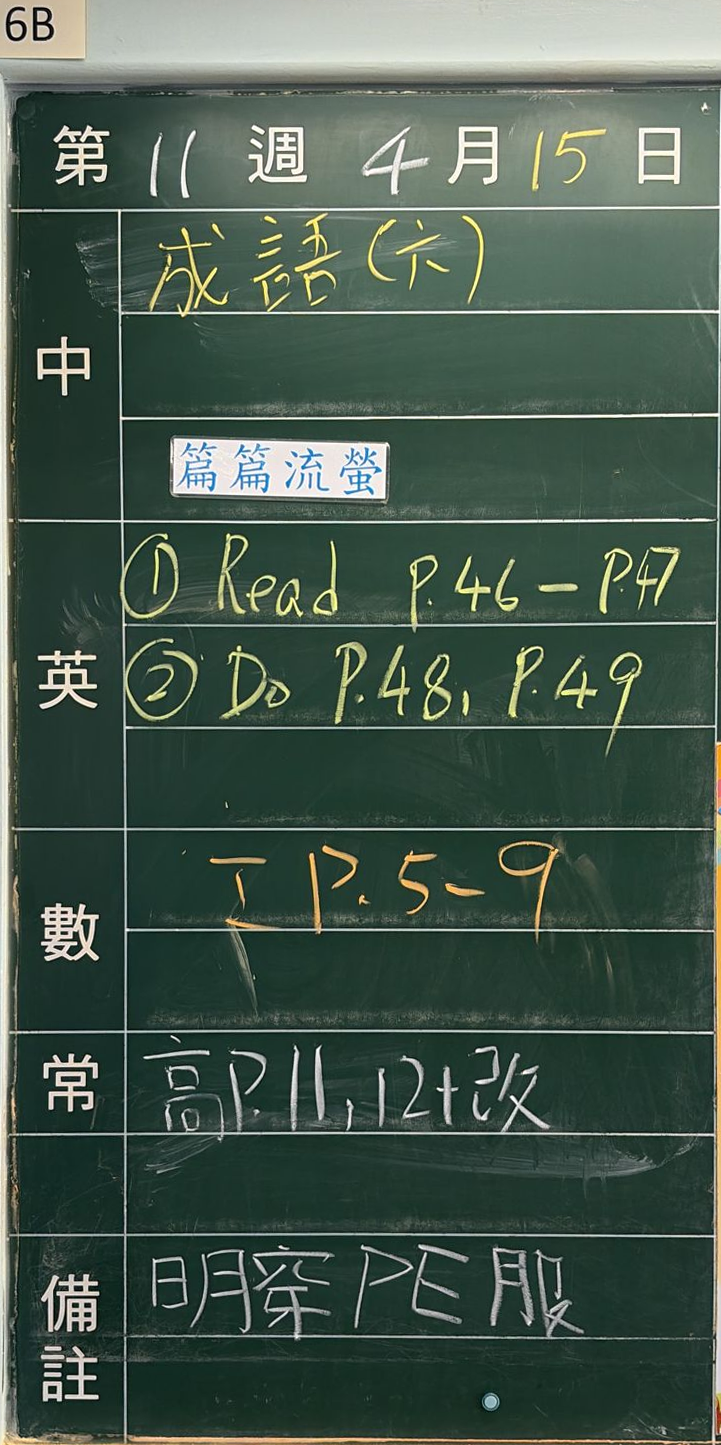 6B
第 11 週 4 月 15 日
中
成語(六)
篇篇流螢
英
① Read P.46-P.47
② Do P.48, P.49
數
工 P.5-9
常
高P.11,12+改
備註
明穿PE服